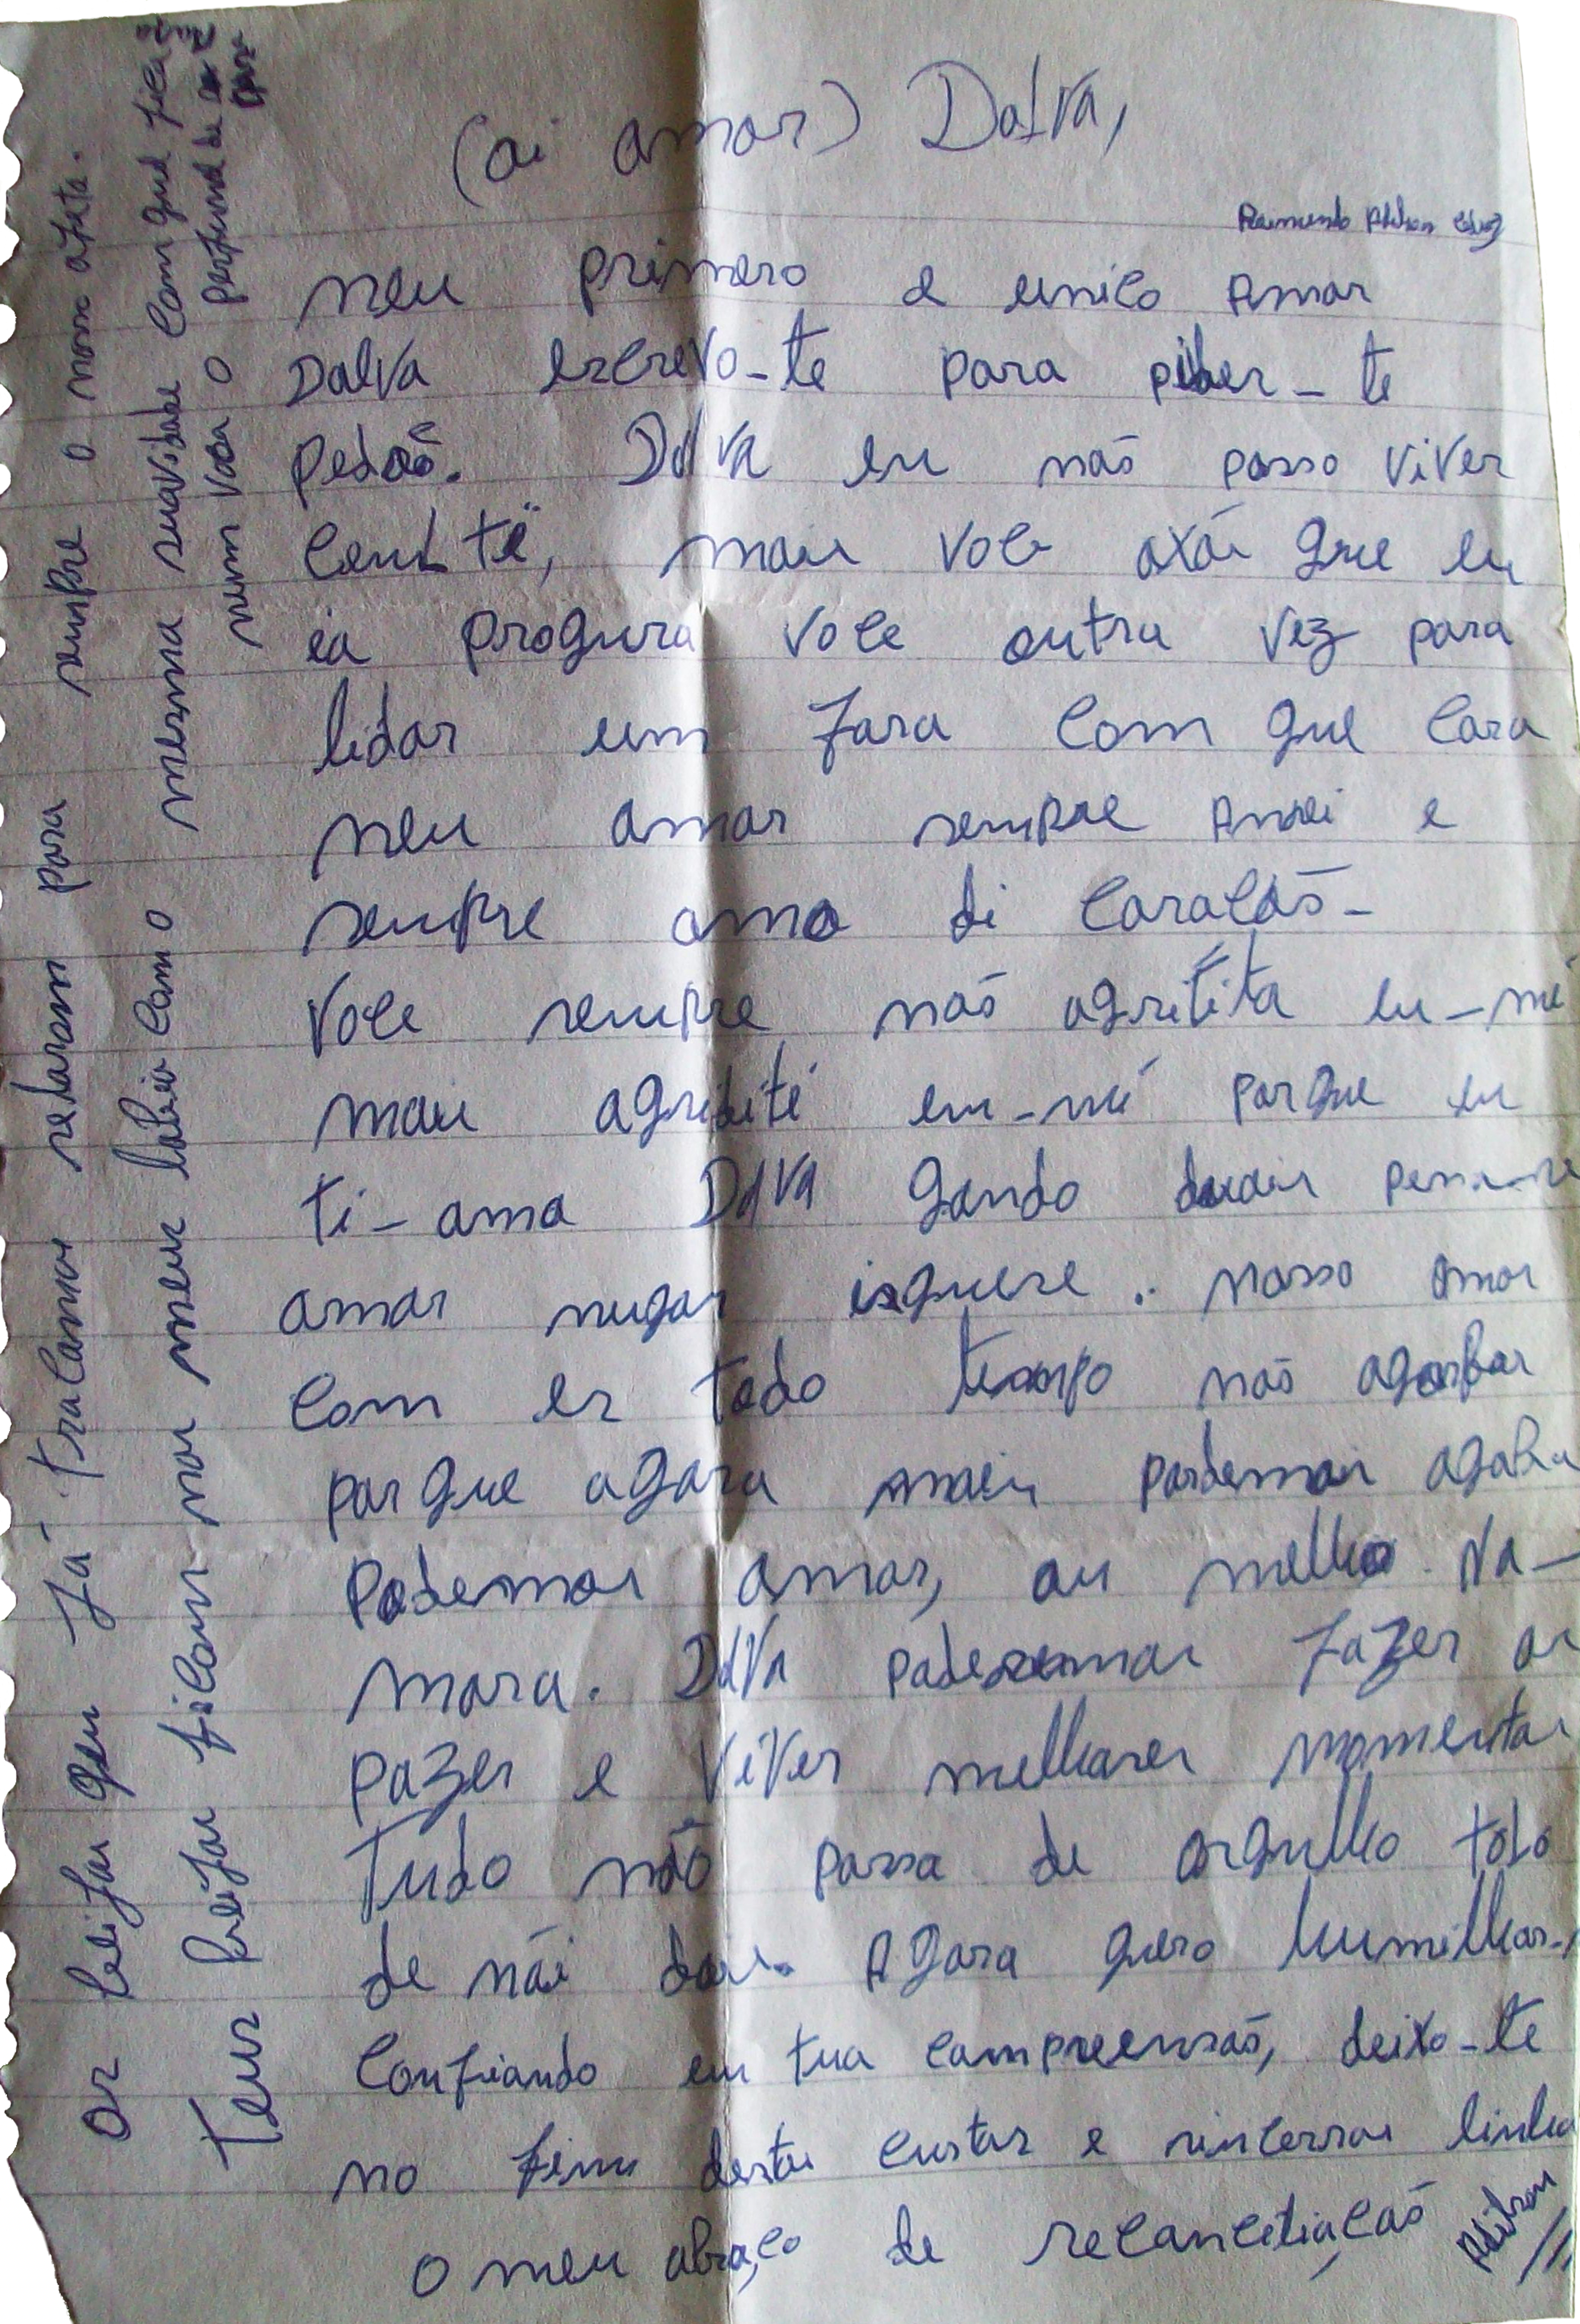 (ai amor) Dalva,
Raimundo
meu primero e unico Amor
Dalva escrevo-te para pider-te
pedoõ. Dalva eu nãs posso viver
cem të, mais voce axái que eu
ia progura voce outra vez para
lidar um fara com que cara
meu amor sempre Amei e
sempre amo di coracãs-
voce sempre nãs agritita eu-mé
mais agriditi eu-mé porque eu
ti-amo Dalva gando duais
amar nugar isquese.. nosso amor
com es todo tempo nãs
porque agora mais podemos agaba
podemos amar, ou melho Na-
mora. Dalva fazer as
pazes e viver melhores momentos
Tudo nãõ passa de orgulho tolo
de nói dois. Agora quero humilhar-
Confiando em tua compreensãs, deixo-te
no fim destas curtas e sinceras linhas
o meu abraço de reconciliaçãs
Os beijos qeu Já trocamos selaram para sempre o noss afeto.
Teus beijos ficam nos meus labios com o mesma suavidade com que fica
num vaso o perfume de